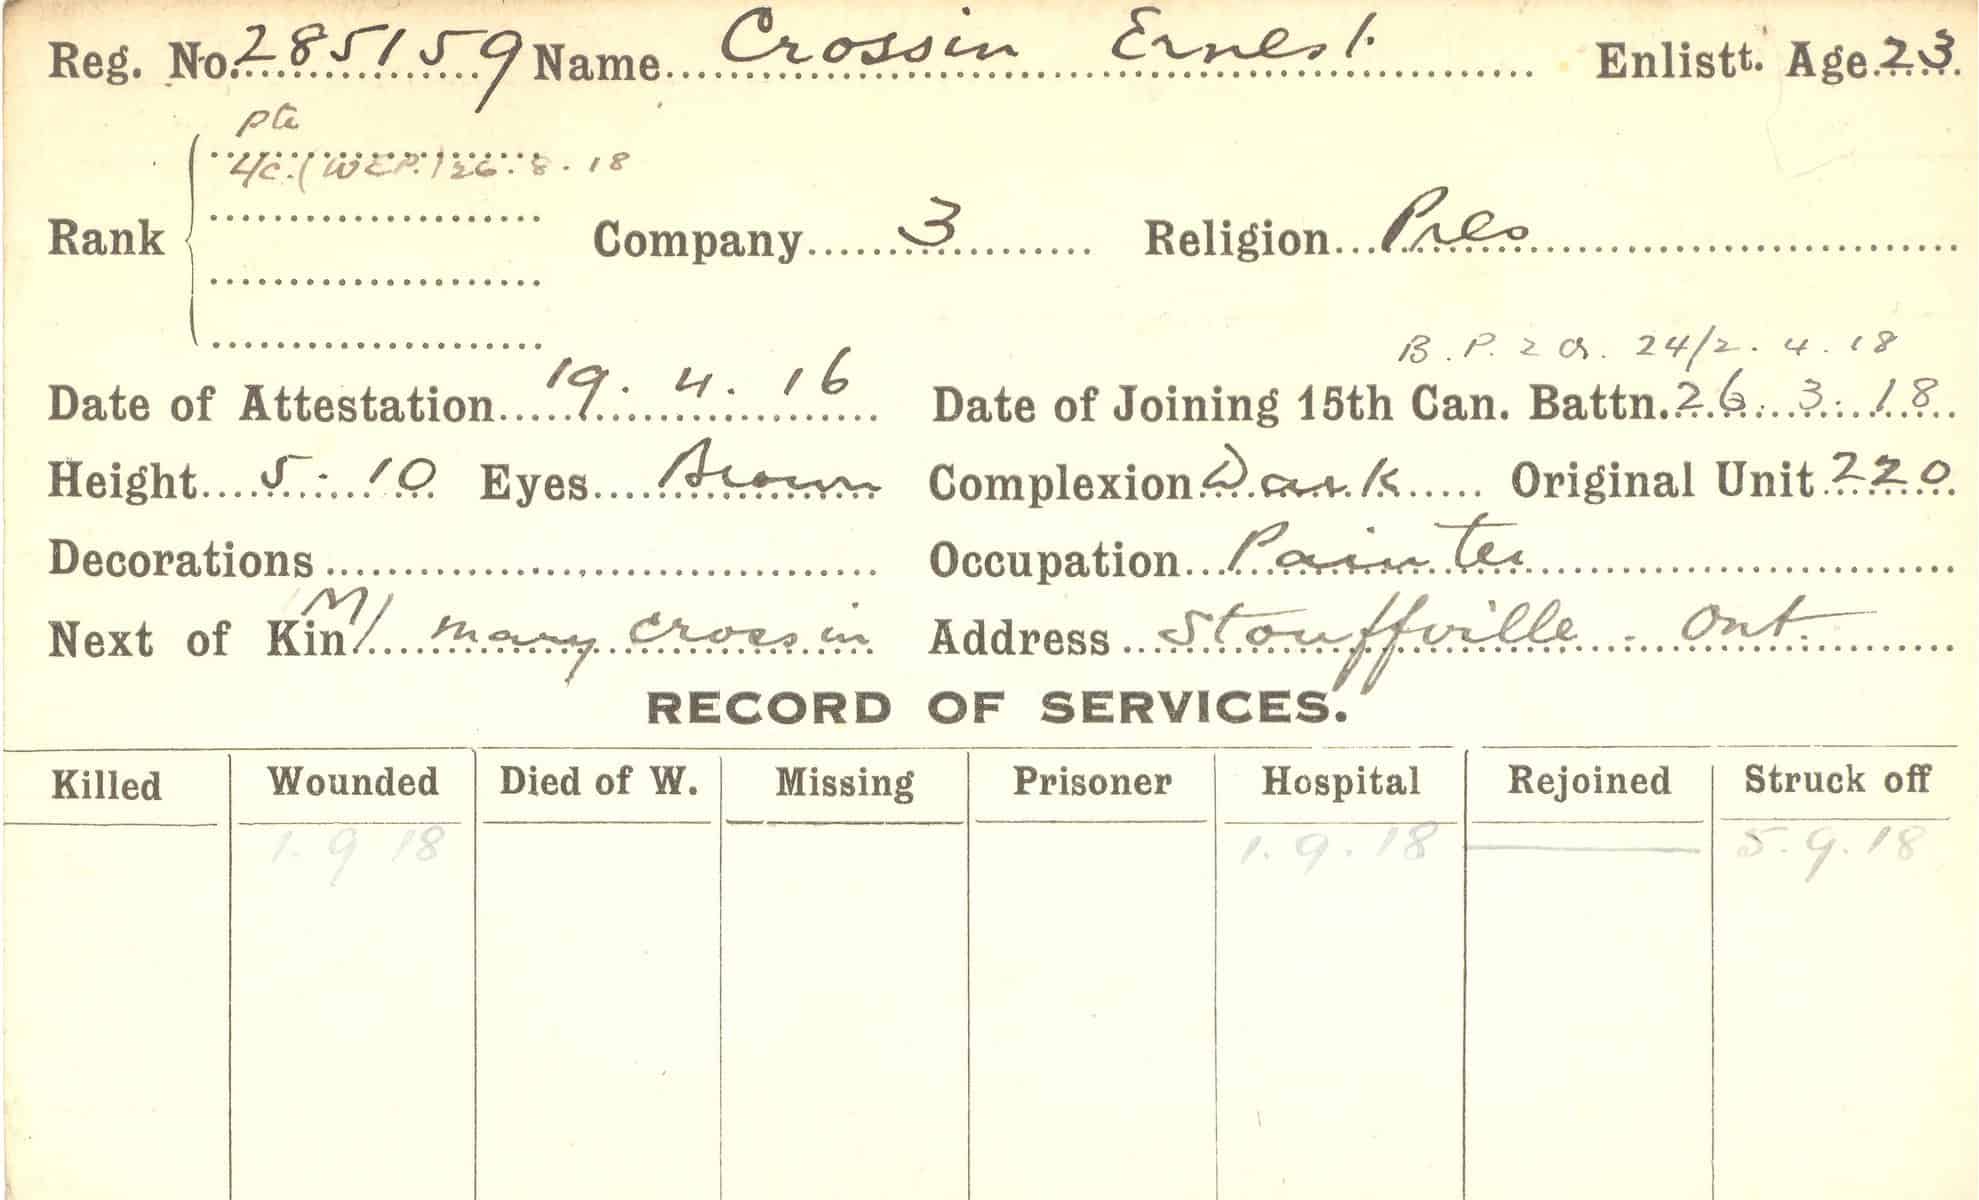 Reg. No. 285159 Name Crossin Ernest Enlistt. Age 23
Pte
L/c. (W.E.P.) 26.8.18
Rank Company 3 Religion Pres
B.P. 2 Or. 24/2.4.18
Date of Attestation 19.4.16 Date of Joining 15th Can. Battn. 26.3.18
Height 5.10 Eyes Brown Complexion Dark Original Unit 220
Decorations Occupation Painter
Next of Kin M/ Mary Crossin Address Stouffville. Ont.
RECORD OF SERVICES.
Killed Wounded Died of W. Missing Prisoner Hospital Rejoined Struck off
1.9.18 1.9.18 5.9.18